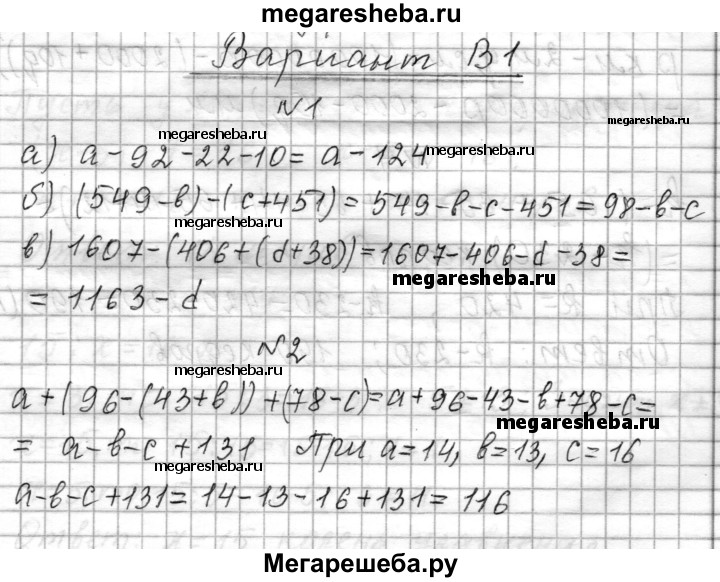 megaresheba.ru
Вариант В1
№1
megaresheba.ru
megaresheba.ru
а) a-92-22-10= a-124
б) (549-в)-(с+451)= 549-в-с-451=98-в-с
megaresheba.ru
в) 1607-(406+(d+38))=1607-406-d-38=
megaresheba.ru
= 1163-d
№2
megaresheba.ru
a+(96-(43+в))+(78-с)=a+96-43-в+78-с=
megaresheba.ru
= a-в-с+131 При a=14, в=13, с=16
megaresheba.ru
a-в-с+131=14-13-16+131=116
Мегарешеба.ру